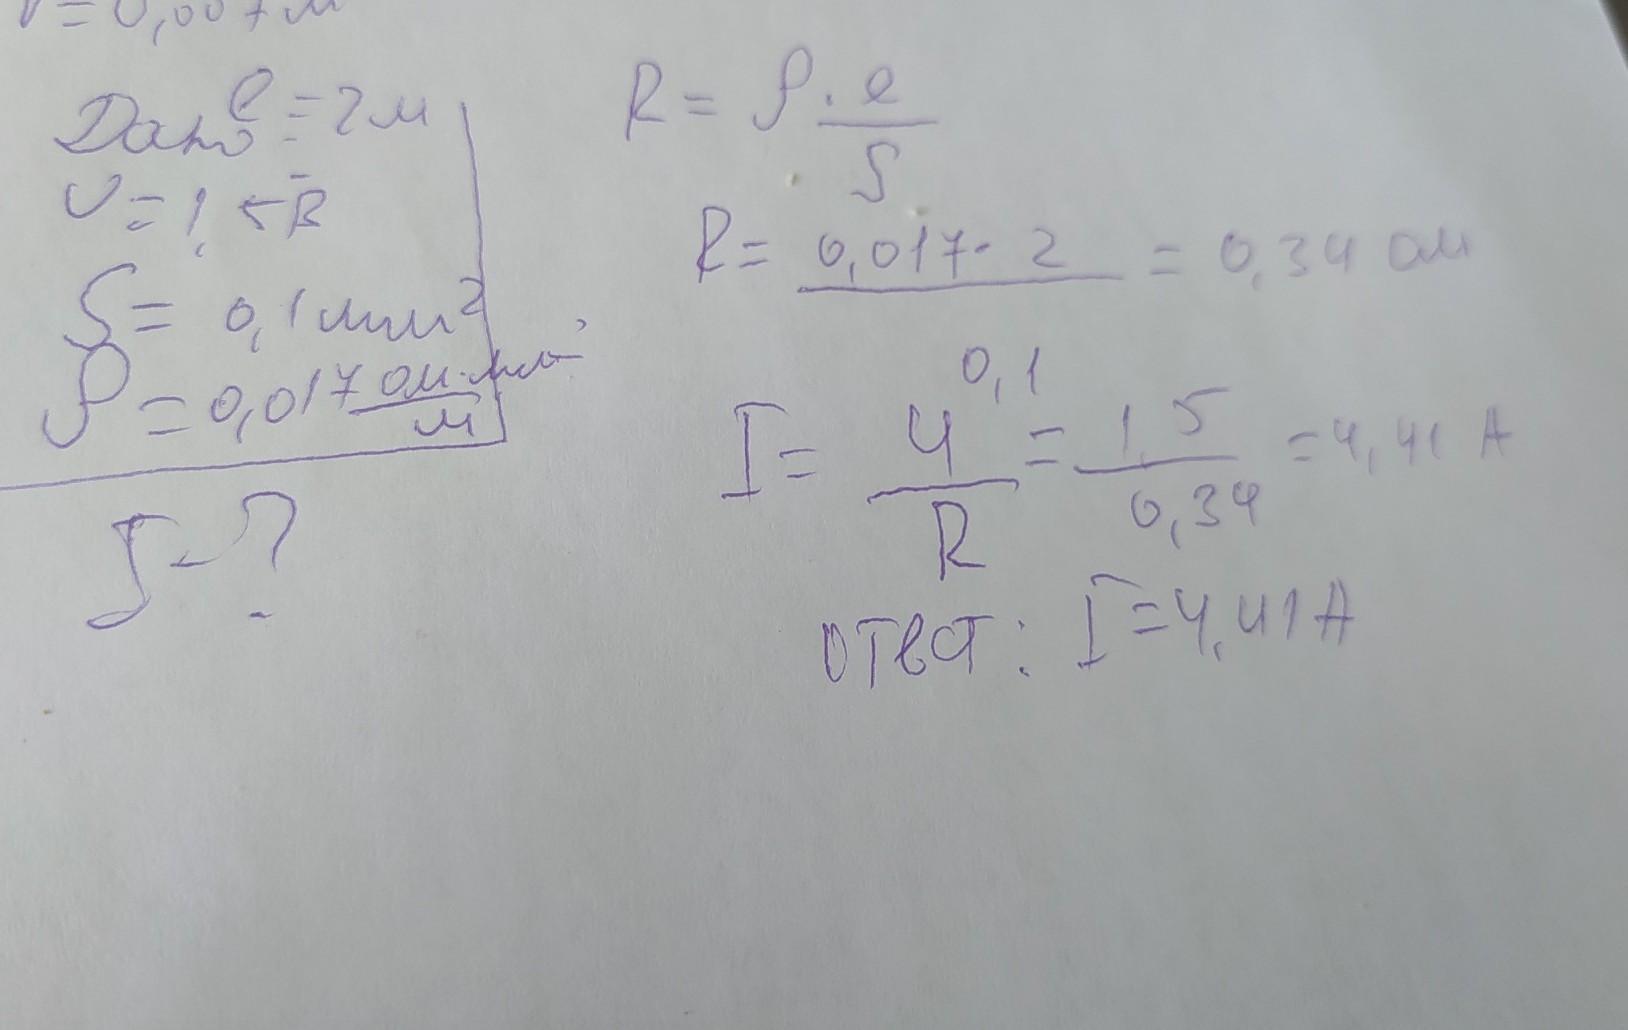 Дано l = 2 м
U = 1,5 В
S = 0,1 мм²
ρ = 0,017 ом·мм² / м
J - ?
R = ρ · l / S
R = 0,017 · 2 / 0,1 = 0,34 ом
I = U / R = 1,5 / 0,34 = 4,41 А
ответ: I = 4,41 А